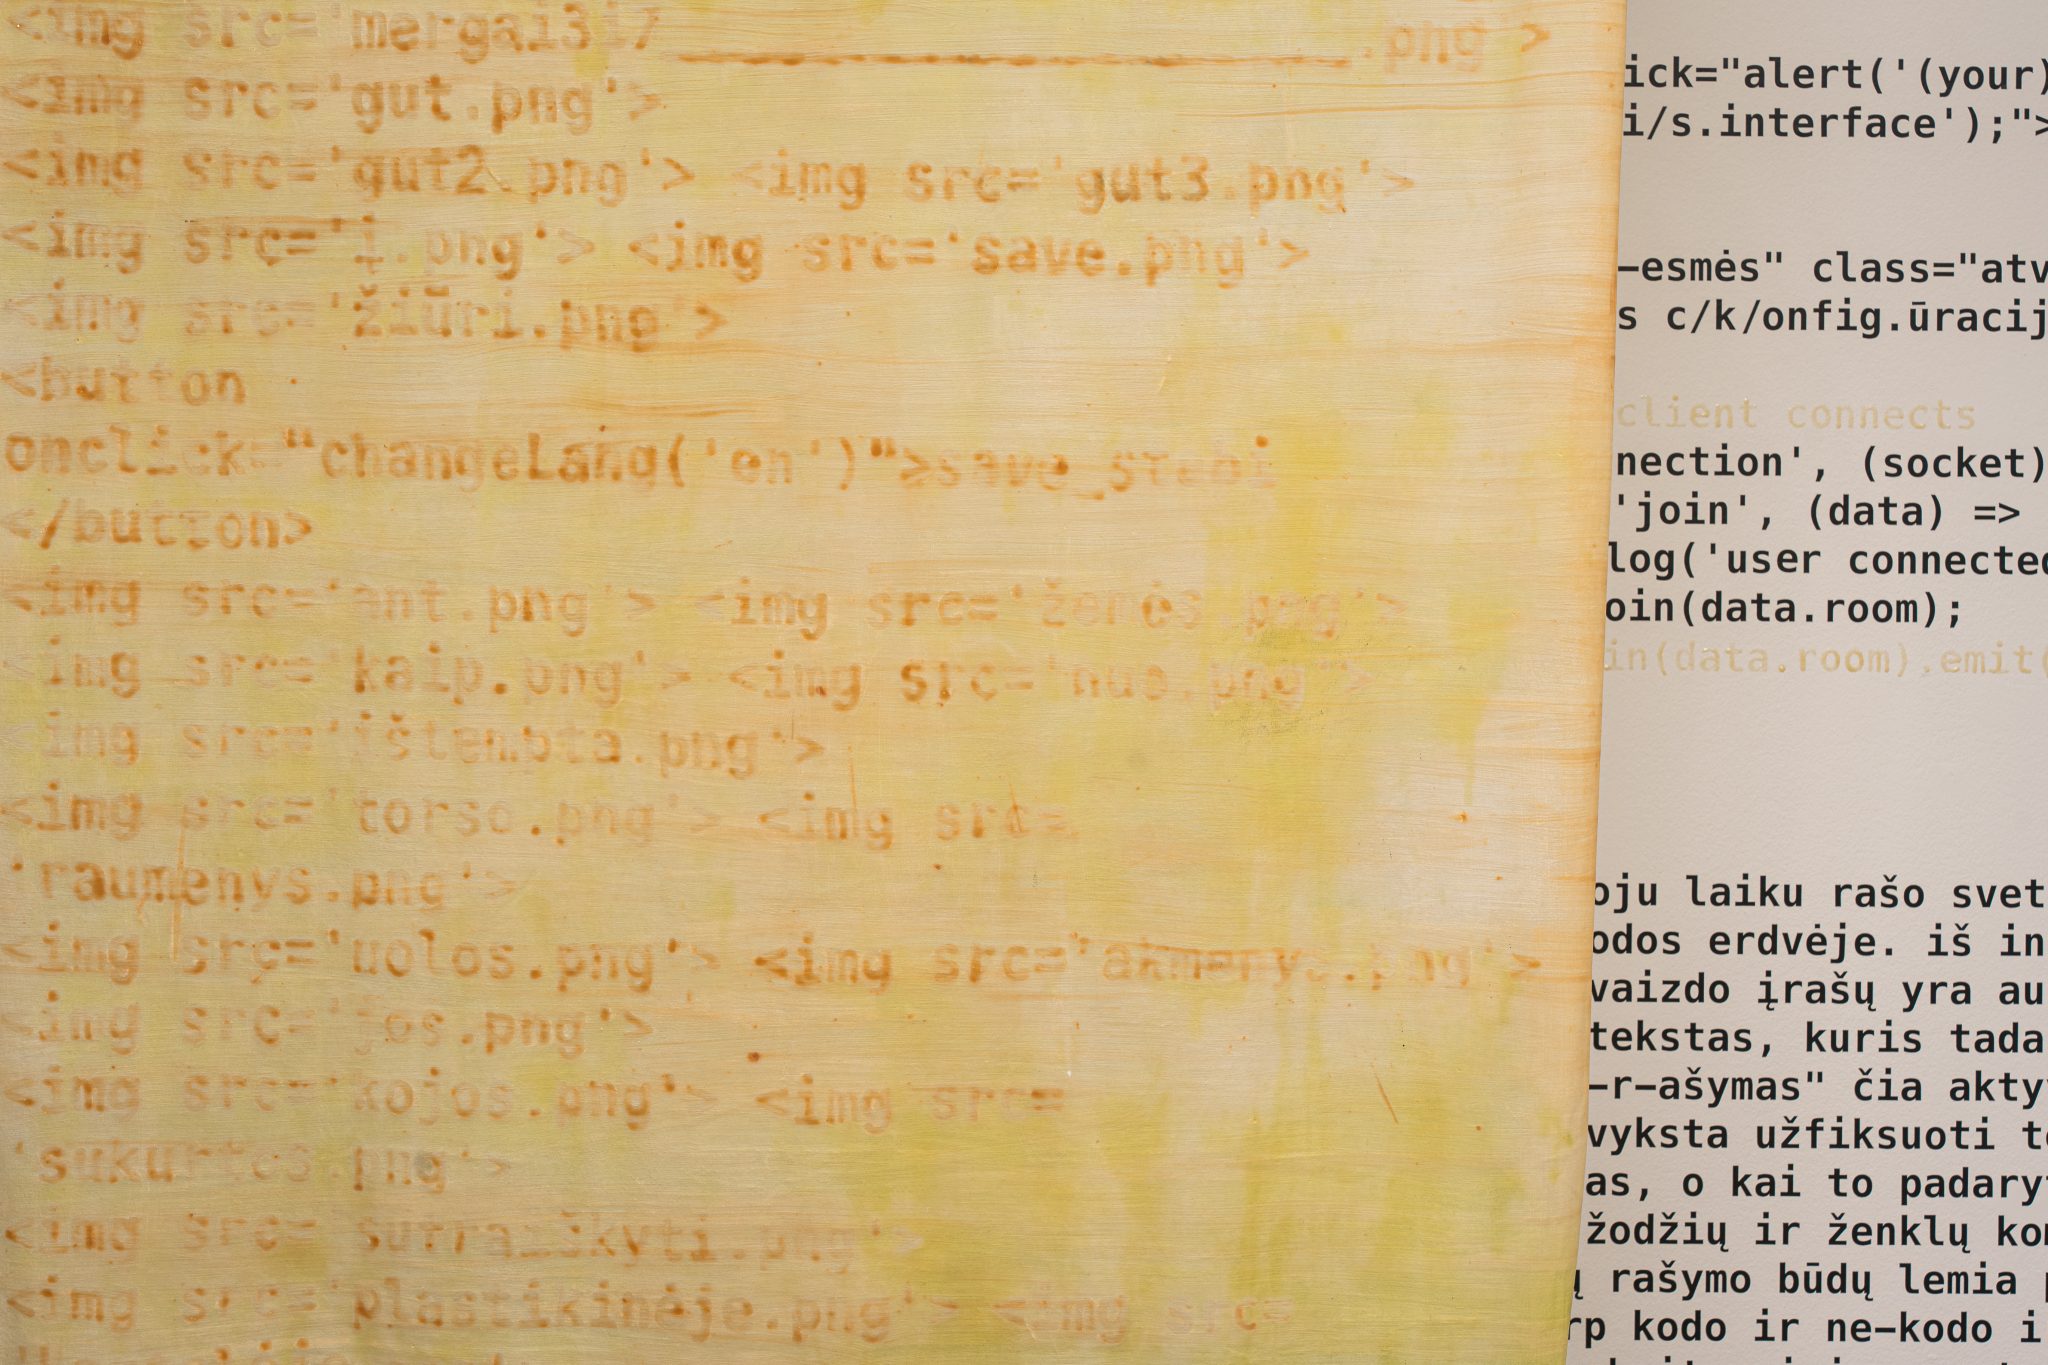 <img src='mergai3i7_______________________.png'>
<img src='gut.png'>
<img src='gut2.png'> <img src='gut3.png'>
<img src='į.png'> <img src='save.png'>
<img src='žiūri.png'>
<button
onclick="changeLang('en')">save_stebi
</button>
<img src='ant.png'> <img src='žemės.png'>
<img src='kaip.png'> <img src='nuo.png'>
<img src='ištempta.png'>
<img src='torso.png'> <img src=
'raumenys.png'>
<img src='uolos.png'> <img src='akmenys.png'>
<img src='jos.png'>
<img src='kojos.png'> <img src=
'sukurtos.png'>
<img src='sutraiškyti.png'>
<img src='plastikinėje.png'> <img src=
ick="alert('(your)
i/s.interface');">
-esmės" class="atv
s c/k/onfig.ūracij
client connects
nection', (socket)
'join', (data) =>
log('user connected
oin(data.room);
in(data.room).emit(
oju laiku rašo svet
odos erdvėje. iš in
vaizdo įrašų yra au
tekstas, kuris tada
-r-ašymas" čia akty
vyksta užfiksuoti t
as, o kai to padary
žodžių ir ženklų ko
ų rašymo būdų lemia p
rp kodo ir ne-kodo i